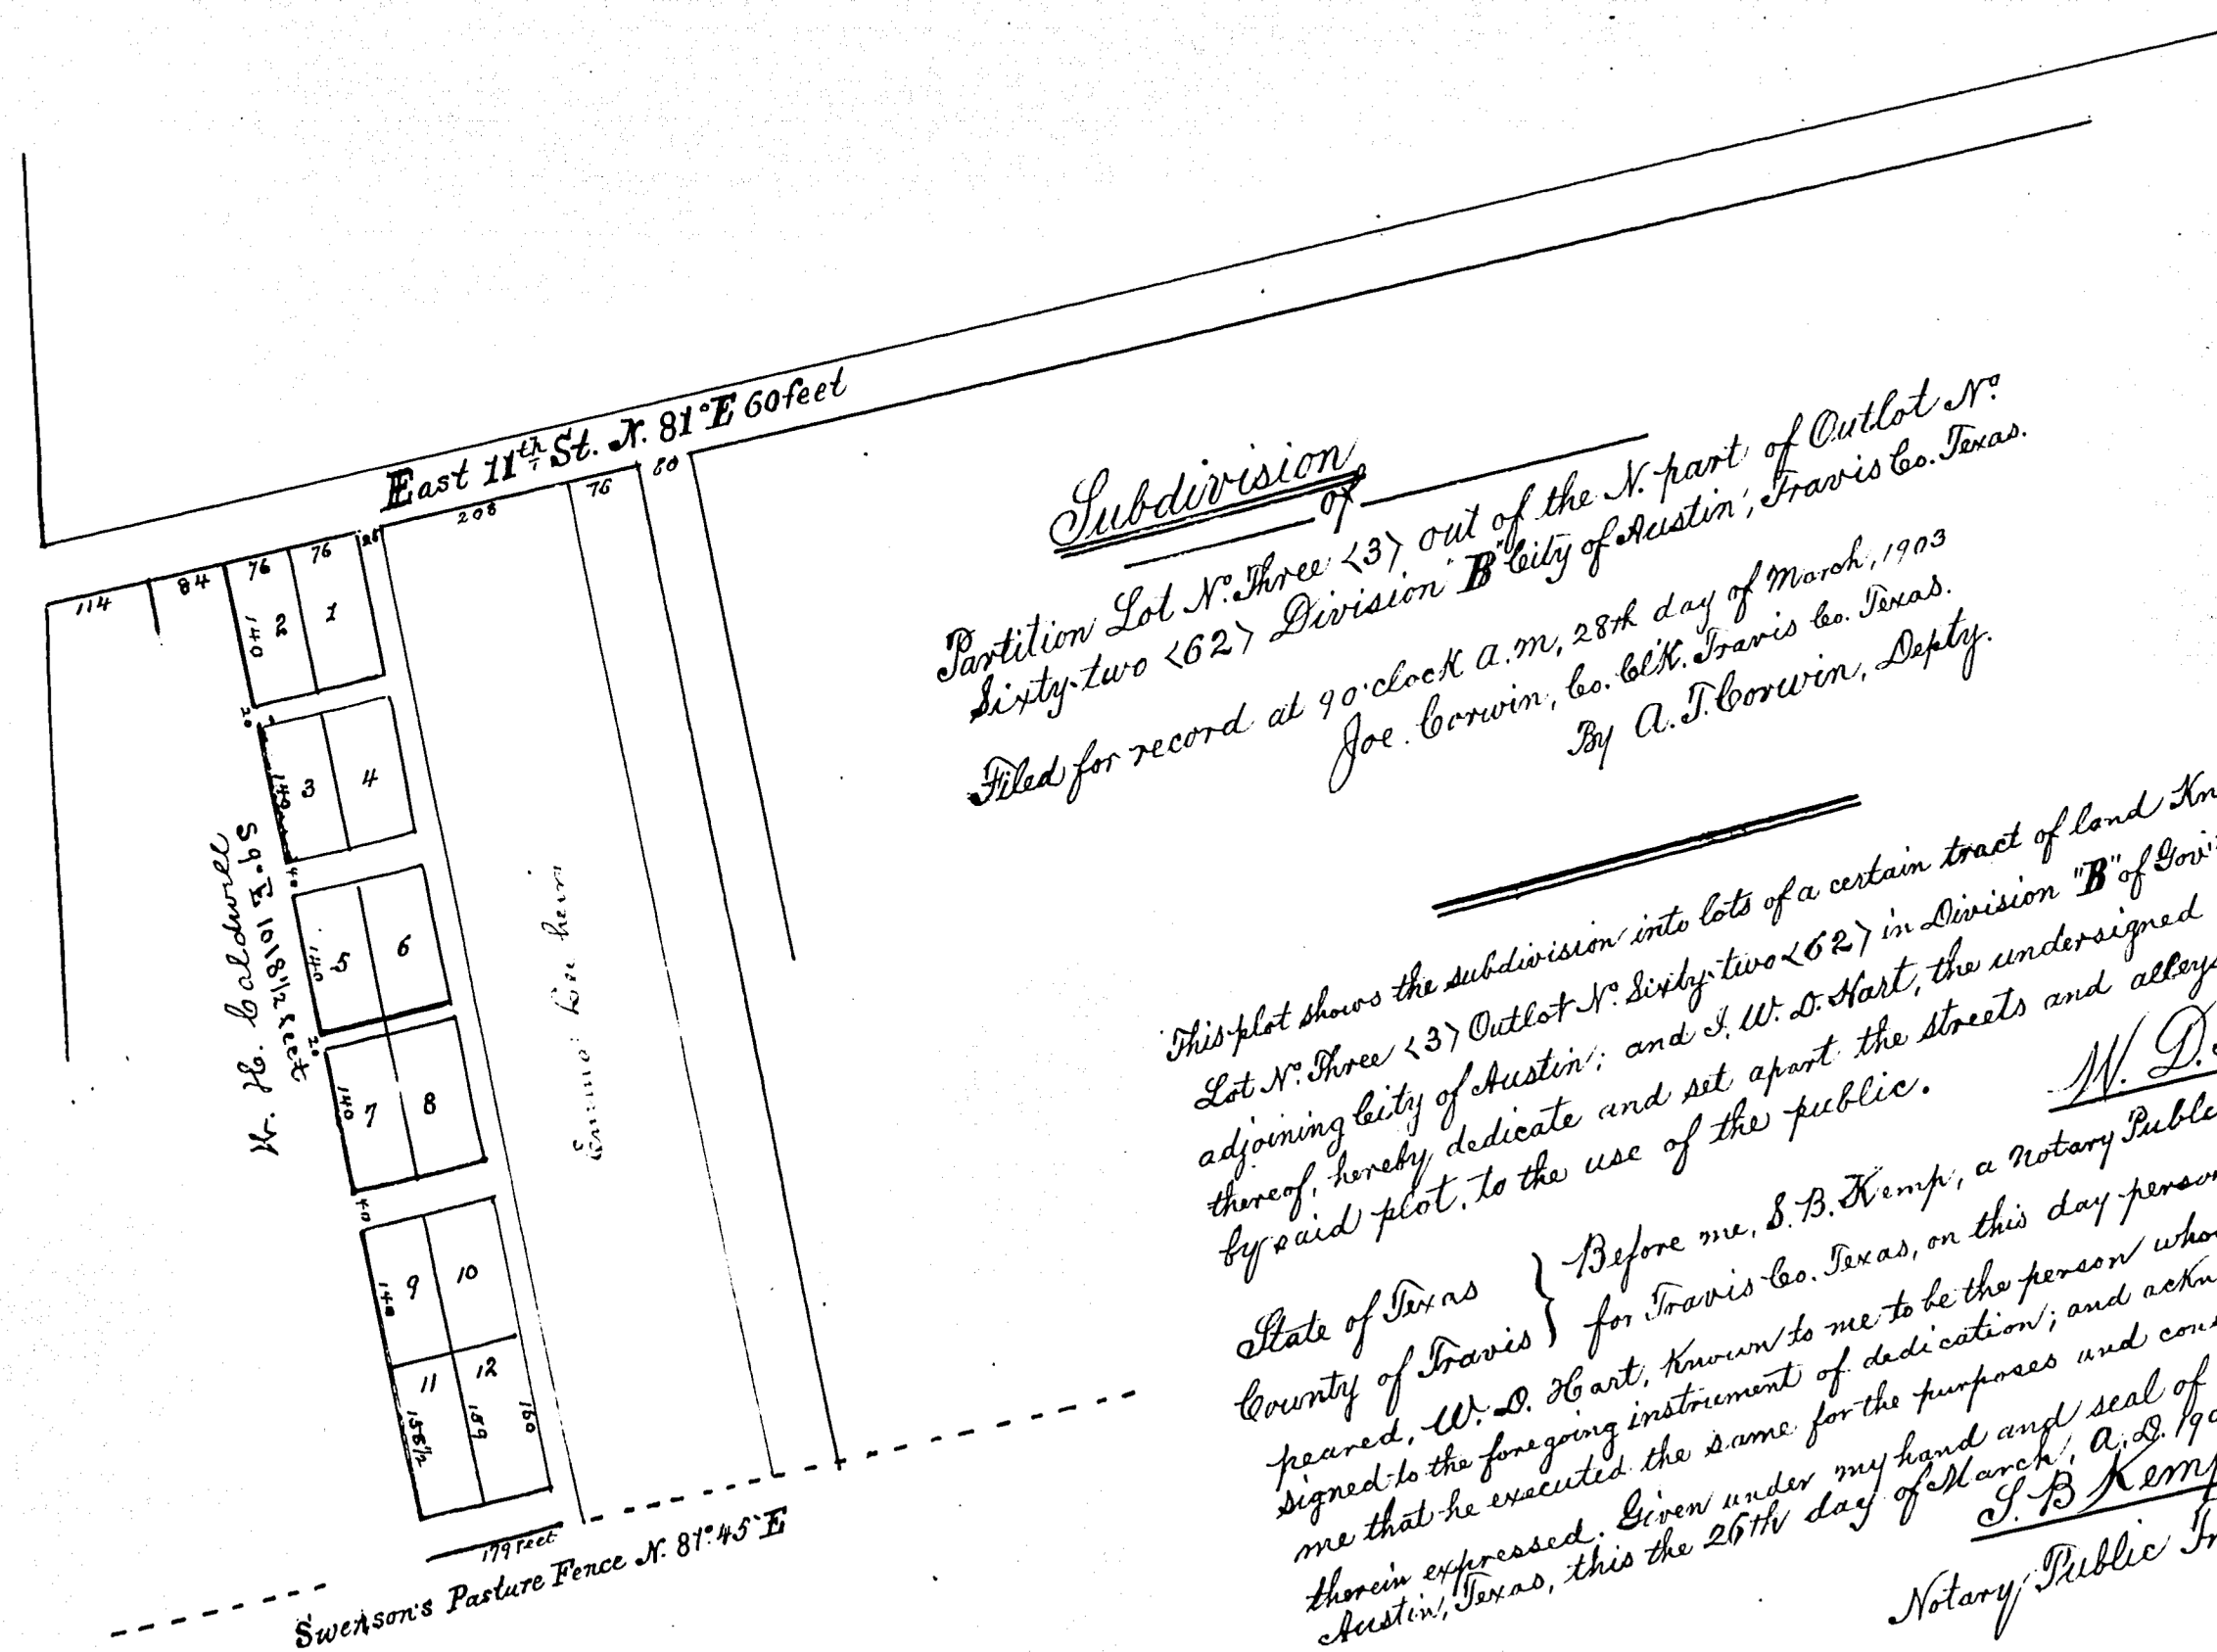 East 11th St. N. 81° E 60 feet
114
84
76
76
208
76
2
1
140
20
3
4
140
40
5
6
140
20
7
8
140
40
9
10
140
11
12
158 1/2
159
160
W. H. Caldwell
1018 1/2 feet
179 feet
Swenson's Pasture Fence N. 81° 45' E
Subdivision
of
Partition Lot No. Three <3> out of the N. part of Outlot No.
Sixty-two <62> Division "B" City of Austin, Travis Co. Texas.
Filed for record at 9 o'clock A.M, 28th day of March, 1903
Joe. Corwin, Co. Cl'k. Travis Co. Texas.
By A. T. Corwin, Depty.
This plot shows the subdivision into lots of a certain tract of land Kn
Lot No. Three <3> Outlot No. Sixty-two <62> in Division "B" of Gov't
adjoining City of Austin; and I, W. D. Hart, the undersigned
thereof, hereby dedicate and set apart the streets and alleys
by said plot, to the use of the public.
W. D.
State of Texas } Before me, S. B. Kemp, a Notary Public
County of Travis } for Travis Co. Texas, on this day person
peared, W. D. Hart, Known to me to be the person who
signed to the foregoing instrument of dedication; and ackn
me that he executed the same for the purposes and cons
therein expressed. Given under my hand and seal of
Austin, Texas, this the 26th day of March, A. D. 190
S. B Kemp
Notary Public Tr